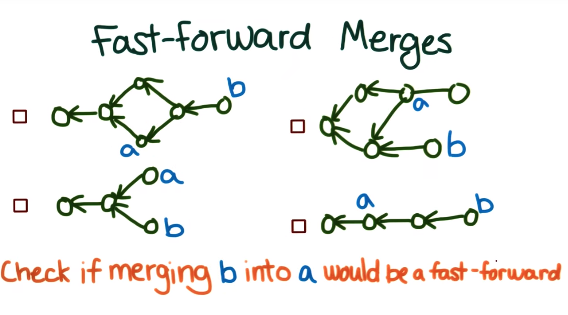 Fast-forward Merges
b
a
a
b
a
b
a
b
Check if merging b into a would be a fast-forward